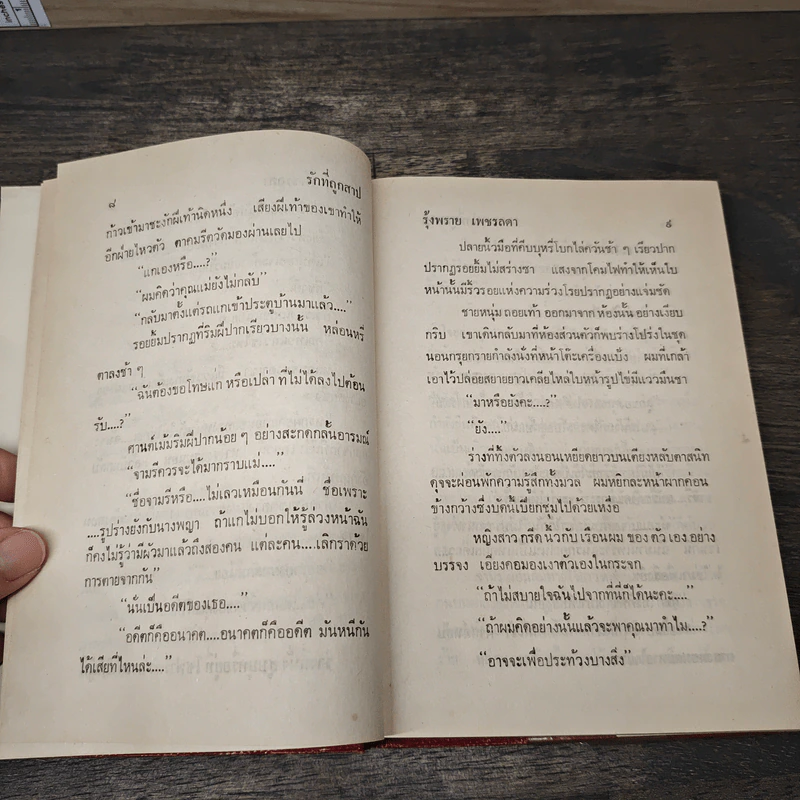 inches
๘
รักที่ถูกสาป
ก้าวเข้ามาชะงักฝีเท้านิดหนึ่ง เสียงฝีเท้าของเขาทำให้
อีกฝ่ายไหวตัว ตาคมรีตวัดมองผ่านเลยไป
“แกเองหรือ....?”
“ผมคิดว่าคุณแม่ยังไม่กลับ”
“กลับมาตั้งแต่รถแกเข้าประตูบ้านมาแล้ว....”
รอยยิ้มปรากฏที่ริมฝีปากเรียวบางนั้น หล่อนหรี่
ตาลงช้า ๆ
“ฉันต้องขอโทษแก หรือเปล่า ที่ไม่ได้ลงไปต้อน
รับ....?”
ศานต์เม้มริมฝีปากน้อย ๆ อย่างสะกดกลั้นอารมณ์
“จามรีควรจะได้มากราบแม่....”
“ชื่อจามรีหรือ....ไม่เลวเหมือนกันนี่ ชื่อเพราะ
....รูปร่างยังกับนางพญา ถ้าแกไม่บอกให้รู้ล่วงหน้าฉัน
ก็คงไม่รู้ว่ามีผัวมาแล้วถึงสองคน แต่ละคน....เลิกราด้วย
การตายจากกัน”
“นั่นเป็นอดีตของเธอ....”
“อดีตก็คืออนาคต....อนาคตก็คืออดีต มันหนีกัน
ได้เสียที่ไหนล่ะ....”
รุ้งพราย เพชรลดา
๙
ปลายนิ้วมือที่คีบบุหรี่โบกไล่ควันช้า ๆ เรียวปาก
ปรากฏรอยยิ้มไม่สร่างซา แสงจากโคมไฟทำให้เห็นใบ
หน้านั้นมีริ้วรอยแห่งความร่วงโรยปรากฏอย่างแจ่มชัด
ชายหนุ่ม ถอยเท้า ออกมาจาก ห้องนั้น อย่างเงียบ
กริบ เขาเดินกลับมาที่ห้องส่วนตัวก็พบร่างโปร่งในชุด
นอนกรุยกรายกำลังนั่งที่หน้าโต๊ะเครื่องแป้ง ผมที่เกล้า
เอาไว้ปล่อยสยายยาวเคลียไหล่ใบหน้ารูปไข่มีแววมึนชา
“มาหรือยังคะ....?”
“ยัง....”
ร่างที่ทิ้งตัวลงนอนเหยียดยาวบนเตียงหลับตาสนิท
ดุจจะผ่อนพักความรู้สึกทั้งมวล ผมหยิกละหน้าผากค่อน
ข้างกว้างซึ่งบัดนี้เปียกชุ่มไปด้วยเหงื่อ
หญิงสาว กรีด นิ้วกับ เรือนผม ของ ตัว เอง อย่าง
บรรจง เอียงคอมองเงาตัวเองในกระจก
“ถ้าไม่สบายใจฉันไปจากที่นี่ก็ได้นะคะ....”
“ถ้าผมคิดอย่างนั้นแล้วจะพาคุณมาทำไม....?”
“อาจจะเพื่อประท้วงบางสิ่ง”